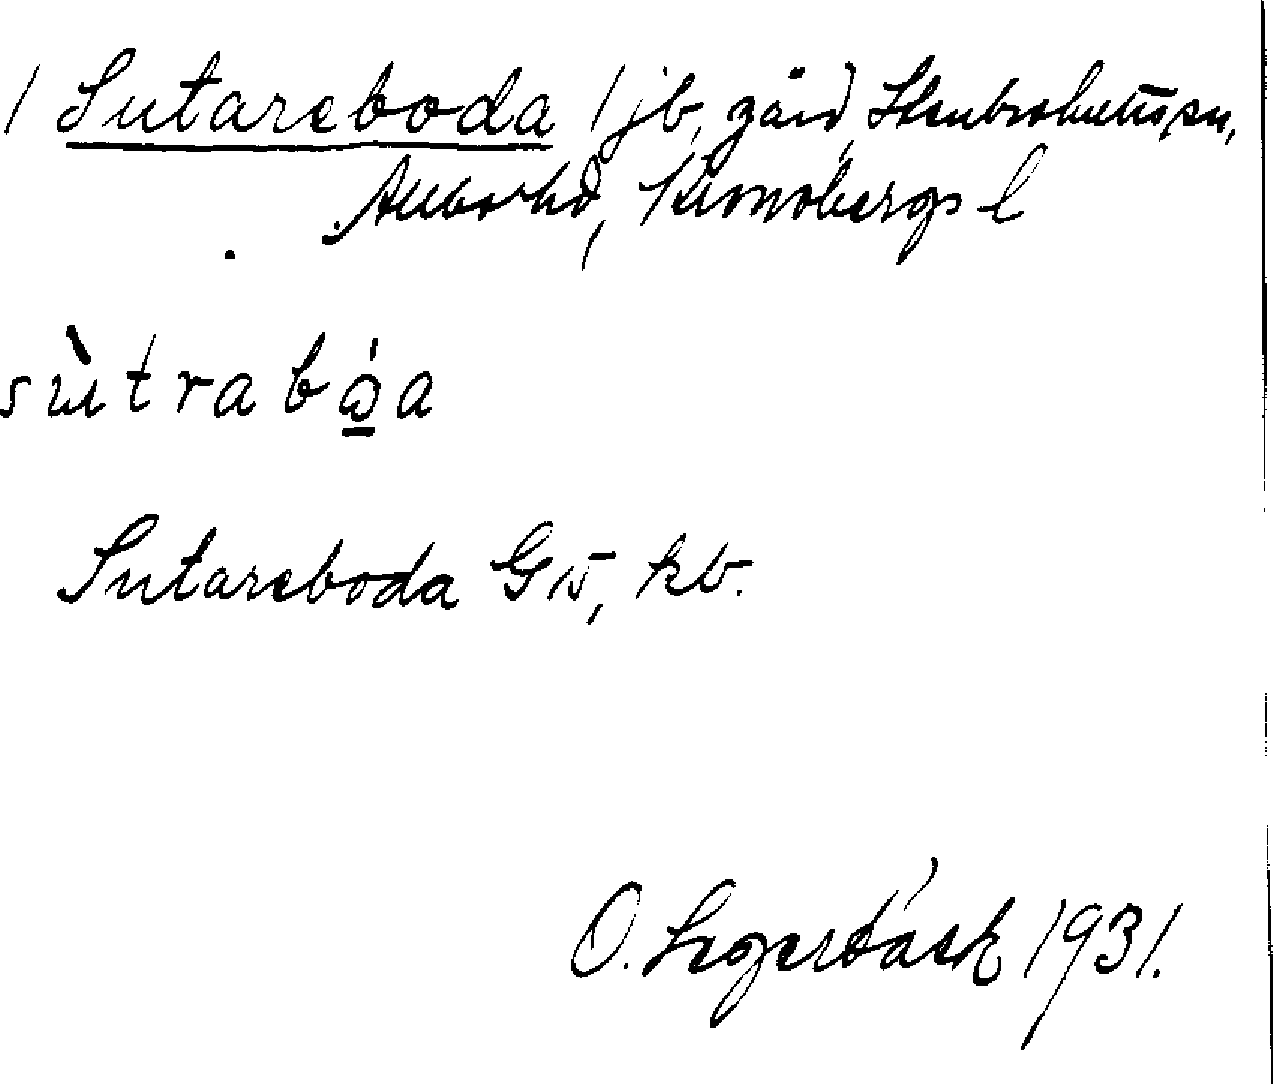 1 Sutareboda 1 jb, gård, Stenbrohults sn,
Allbo hd, Kronobergs l
sùtrabóa
Sutareboda G 15, kb.
O. Segerbäck 1931.